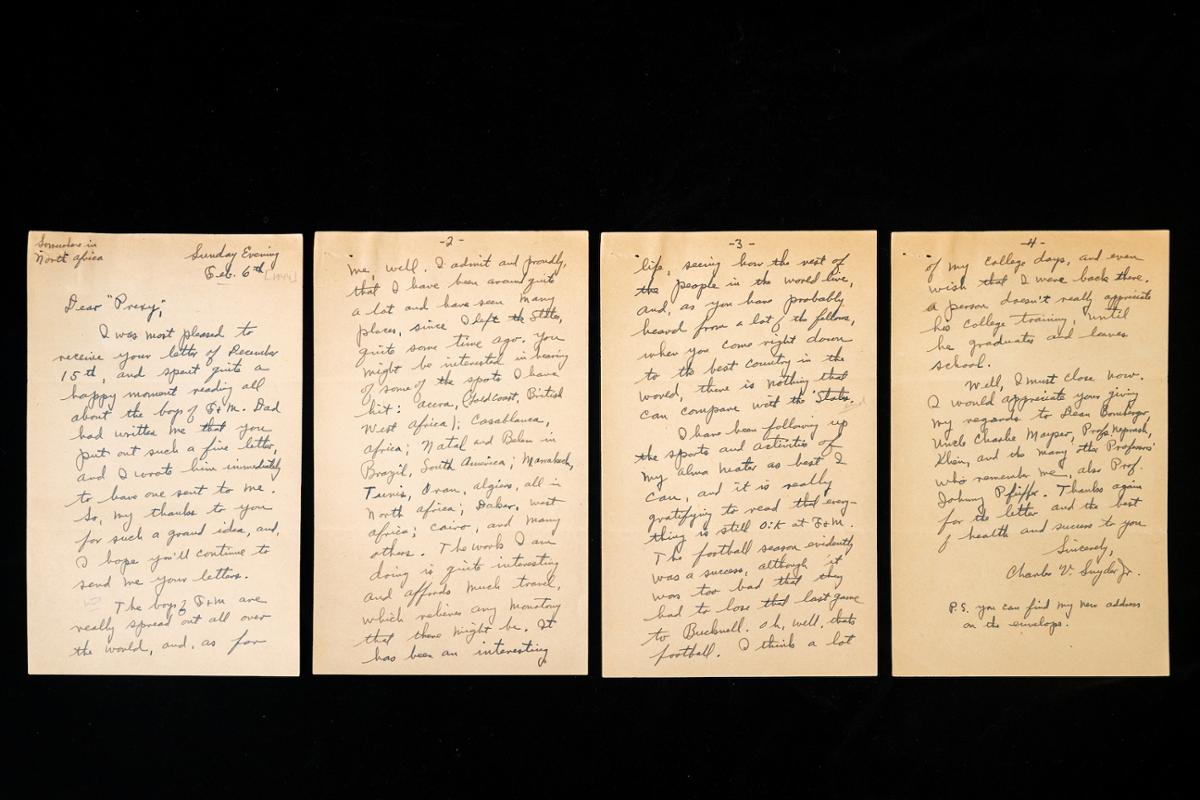 Somewhere in
North Africa
Sunday Evening
Feb. 6th
Dear "Prexy",
I was most pleased to
receive your letter of December
15th, and spent quite a
happy moment reading all
about the boys of F&M. Dad
had written me that you
put out such a fine letter,
and I wrote him immediately
to have one sent to me.
So, my thanks to you
for such a grand idea, and,
I hope you'll continue to
send me your letters.
The boys of F&M are
really spread out all over
the world, and, as for
-2-
me, well. I admit and proudly,
that I have been around quite
a lot and have seen many
places, since I left the States,
quite some time ago. You
might be interested in hearing
of some of the spots I have
hit: Accra, (Gold Coast, British
West Africa); Casablanca,
Africa; Natal and Belem in
Brazil, South America; Marrakech,
Tunis, Oran, Algiers, all in
North Africa; Dakar, West
Africa; Cairo, and many
others. The work I am
doing is quite interesting
and affords much travel,
which relieves any monotony
that there might be. It
has been an interesting
-3-
life, seeing how the rest of
the people in the world live,
and, as you have probably
heard from a lot of the fellows,
when you come right down
to the best country in the
world, there is nothing that
can compare with the States.
I have been following up
the sports and activities of
my alma mater as best I
can, and it is really
gratifying to read that every-
thing is still O.K at F&M.
The football season evidently
was a success, although it
was too bad that they
had to lose that last game
to Bucknell. Oh, well, thats
football. I think a lot
-4-
of my college days, and even
wish that I were back there.
A person doesn't really appreciate
his college training, until
he graduates and leaves
school.
Well, I must close now.
I would appreciate your giving
my regards to Dean Bomberger,
Uncle Charlie Mayser, Profs
Klein, and the many other Professors
who remember me, also Prof.
Johnny Pfeiffer. Thanks again
for the letter and the best
of health and success to you
Sincerely,
Charles V. Snyder Jr.
P.S. you can find my new address
on the envelope.